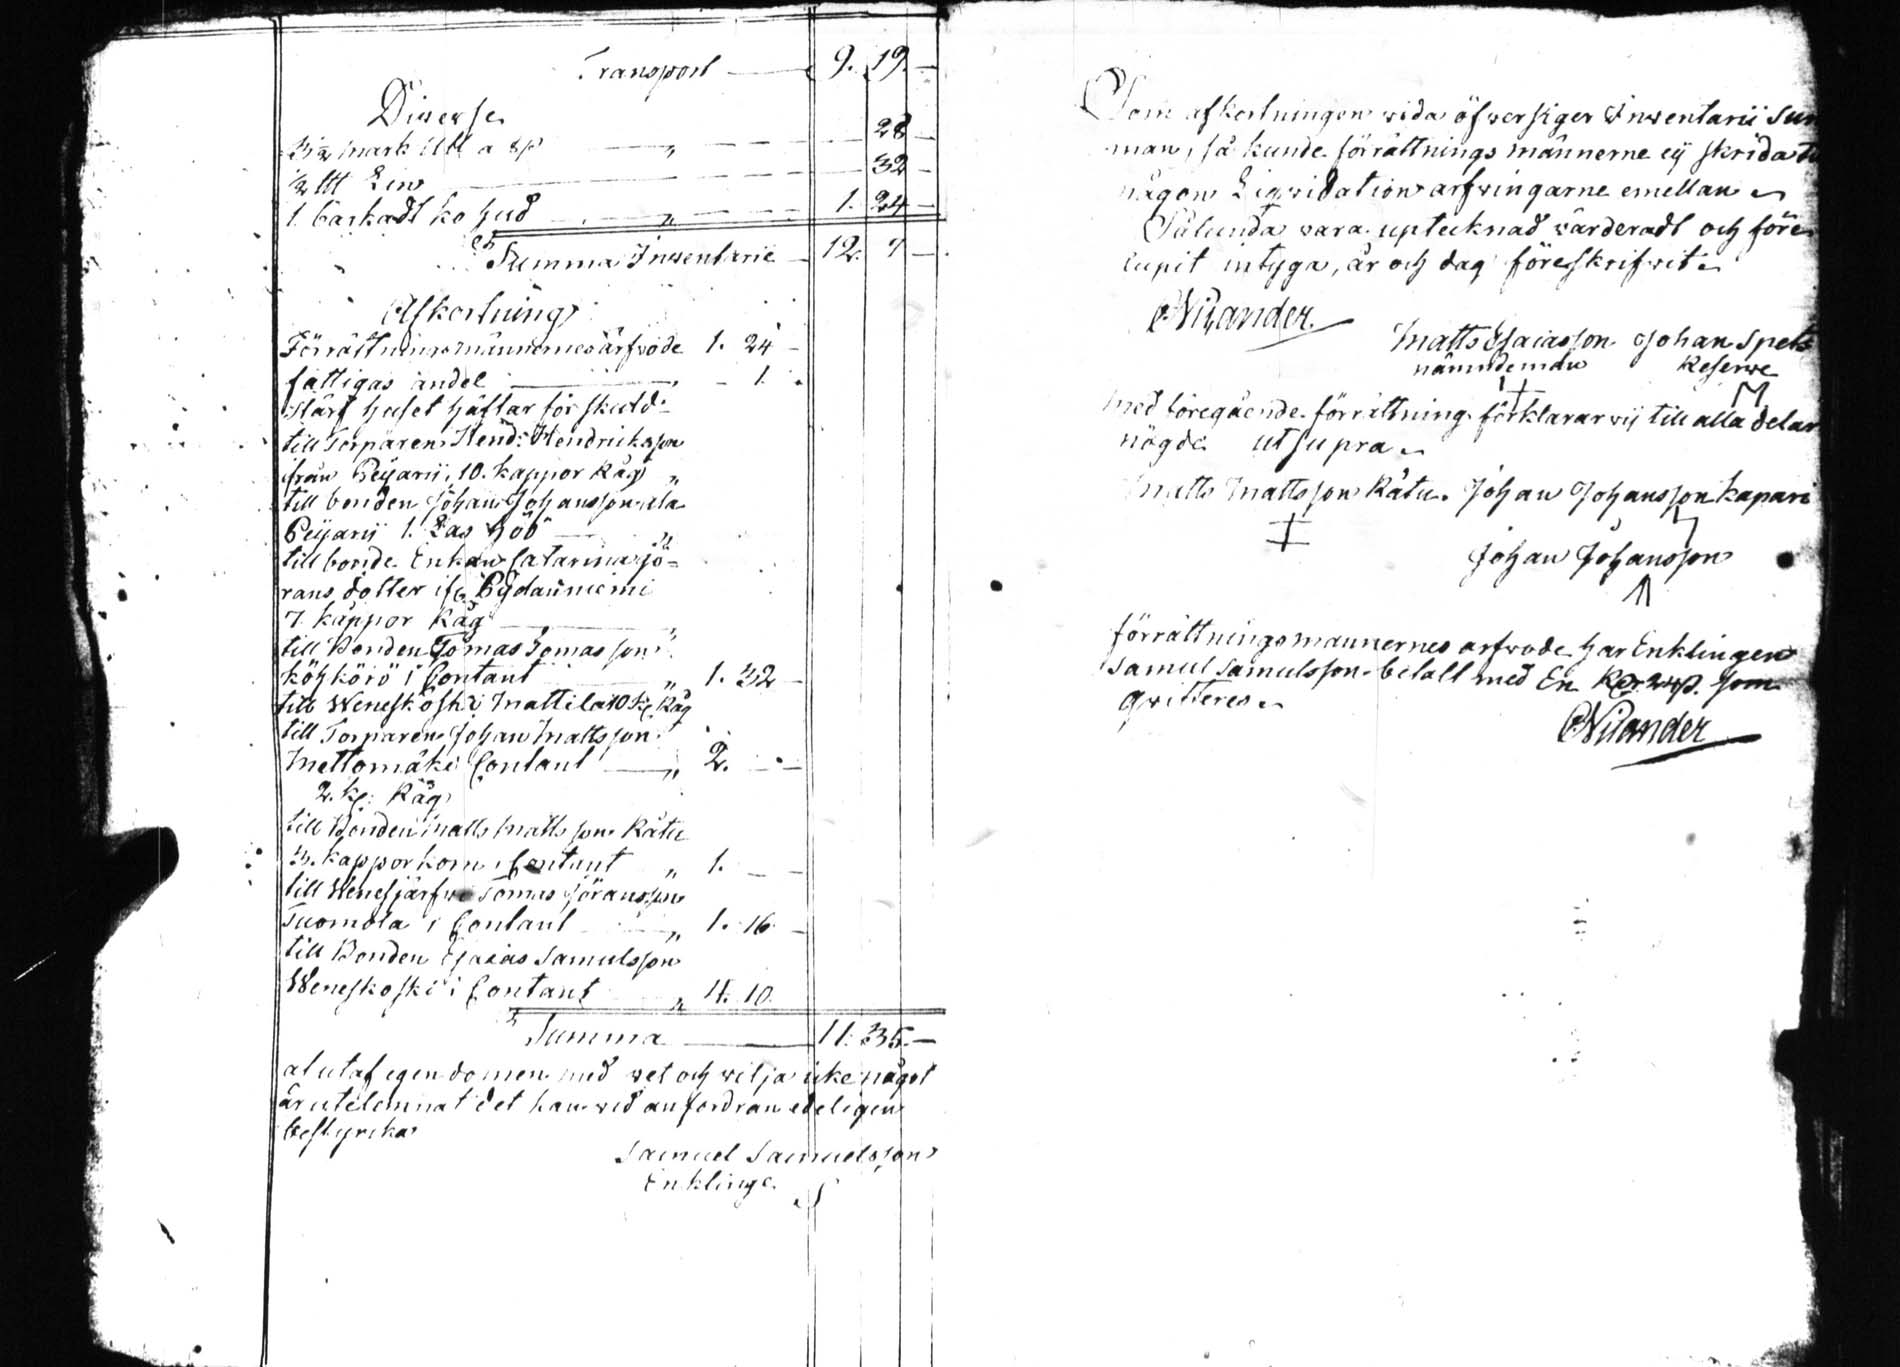 Transport 9. 19. —
Diverse
3½ mark Ull a 8 β „ 28 —
½ ltt Lin 32 —
1. barkadt ko hud „ 1. 24 —
Summa Inventarie 12. 7 —
Afkortning
Förrättningsmännernes arfvode 1. 24 —
fattigas andel „ — 1. —
Stärf huset häftar för skuld
till Torparen Hend: Hendricksson
från Peijarij, 10. kappor Råg „
till bonden Johan Johansson
Peijarij 1. Las höö „
till bonde Enkan Catarina Jö=
rans dotter
7. kappor Råg „
till Bonden Tomas Tomasson
Köhkörö i Contant „ 1. 32 —
till Weneskoski Mattila 10 k: Råg
till Torparen Johan Mattsson
Mettomäki Contant „ 2. — —
2. k: Råg
till Bonden Matts Mattsson Rátu
3. kappor korn, Contant „ 1. — —
till Wenesjärfvi Tomas Jöransson
Tuomola i Contant „ 1. 16. —
till Bonden Esaias Samulsson
Weneskoski i Contant „ 4. 10.
Summa 11. 35. —
at utaf egendomen med vet och vilja icke något
är utelemnat det han vid anfordran edeligen
bestyrka
Samuel Samuelsson
Enklinge
S
Som afkortningen vida öfverstiger Inventarii Sum
man, så kunde förrättnings männerne eij skrida
någon Liqvidation arfvingarne emellan
Sålunda vara uptecknad värderadt och före
lupit intyga, år och dag föreskrifvit.
Nilander.
Matts Esaiasson Johan Spets
nämndeman Reserve
Med föregående förrättning förklarar vij till alla delar
nögde ut supra
Matts Mattsson Rátu. Johan Johansson Kapari
Johan Johansson
förrättningsmannernes arfvode har Enklingen
Samul Samulsson betalt med En R:d 24 β. som
qvitteres.
Nilander